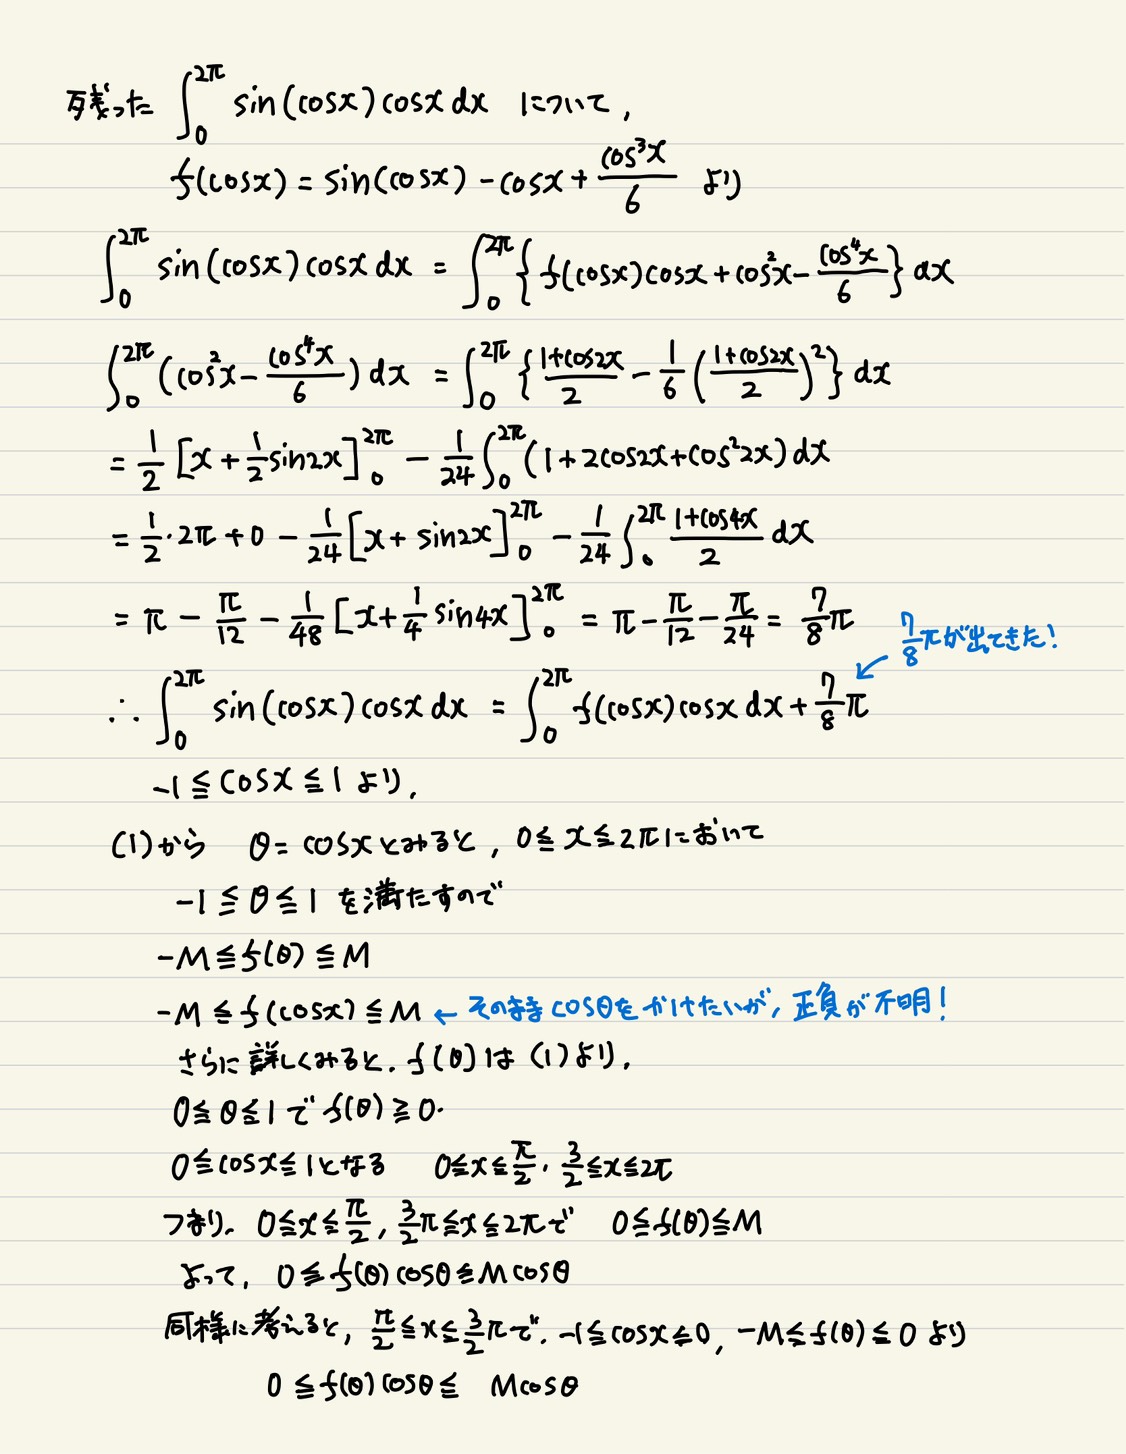 残った ∫₀^{2π} sin(cosx)cosx dx について,
f(cosx) = sin(cosx) - cosx + cos³x/6 より
∫₀^{2π} sin(cosx)cosx dx = ∫₀^{2π} { f(cosx)cosx + cos²x - cos⁴x/6 } dx
∫₀^{2π} (cos²x - cos⁴x/6) dx = ∫₀^{2π} { (1+cos2x)/2 - 1/6 ((1+cos2x)/2)² } dx
= 1/2 [x + 1/2 sin2x]₀^{2π} - 1/24 ∫₀^{2π} (1+2cos2x+cos²2x) dx
= 1/2・2π + 0 - 1/24 [x + sin2x]₀^{2π} - 1/24 ∫₀^{2π} (1+cos4x)/2 dx
= π - π/12 - 1/48 [x + 1/4 sin4x]₀^{2π} = π - π/12 - π/24 = 7/8 π
7/8 πが出てきた!
∴ ∫₀^{2π} sin(cosx)cosx dx = ∫₀^{2π} f(cosx)cosx dx + 7/8 π
-1 ≦ cosx ≦ 1 より,
(1)から θ = cosxとみると, 0 ≦ x ≦ 2πにおいて
-1 ≦ θ ≦ 1 を満たすので
-M ≦ f(θ) ≦ M
-M ≦ f(cosx) ≦ M ← そのままcosθをかけたいが, 正負が不明!
さらに詳しくみると, f(θ)は(1)より,
0 ≦ θ ≦ 1で f(θ) ≧ 0.
0 ≦ cosx ≦ 1となる 0 ≦ x ≦ π/2, 3/2 ≦ x ≦ 2π
つまり, 0 ≦ x ≦ π/2, 3/2 π ≦ x ≦ 2πで 0 ≦ f(θ) ≦ M
よって, 0 ≦ f(θ)cosθ ≦ Mcosθ
同様に考えると, π/2 ≦ x ≦ 3/2 πで, -1 ≦ cosx ≦ 0, -M ≦ f(θ) ≦ 0 より
0 ≦ f(θ)cosθ ≦ Mcosθ